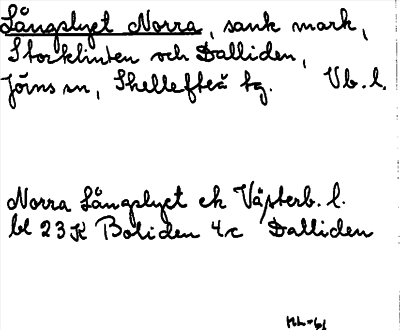 Långslyet Norra, sank mark,
Storklinten och Dalliden,
Jörns sn, Skellefteå tg. Vb. l.
Norra Långslyet ek Västerb. l.
bl 23 K Boliden 4c Dalliden